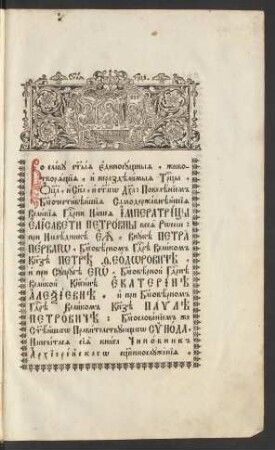 Во славу ст҃ыѧ є҆диносꙋщныѧ, живо-
творѧщїѧ, и҆ нераздѣлимыѧ Трⷪ҇цы,
Ѻ҆ц҃а, и҆ Сн҃а, и҆ ст҃агѡ Дх҃а: Повелѣнїемъ
Бл҃гочестивѣйшїѧ Самодержавнѣйшїѧ
Великїѧ Гдⷭ҇рни Нашеѧ І҆МПЕРАТРИЦЫ
Е҆ЛІСАВЕТИ ПЕТРОВНЫ всеѧ Рѡссїи:
при Наслѣдникѣ Е҆Ѧ̀, Внꙋкѣ ПЕТРА
ПЕРВАГѠ, Бл҃говѣрномъ Гдⷭ҇рѣ Великомъ
Кнѧзѣ ПЕТРѢ ѲЕОДѠРОВИЧѢ,
и҆ при Сꙋпрꙋгѣ Е҆ГѠ̀, Бл҃говѣрной Гдⷭ҇рнѣ
Великой Кнѧгинѣ Е҆КАТЕРІНѢ
А҆ЛЕѮІЕВНѢ, и҆ при Бл҃говѣрномъ
Гдⷭ҇рѣ Великомъ Кнѧзѣ ПАУЛѢ
ПЕТРОВИЧѢ: Бл҃гословенїемъ же
Ст҃ѣйшагѡ Правителствꙋющагѡ СѴНОДА.
Напечатасѧ сїѧ книга Чиновникъ
А҆рхїерейскагѡ сщ҃еннослꙋженїѧ.